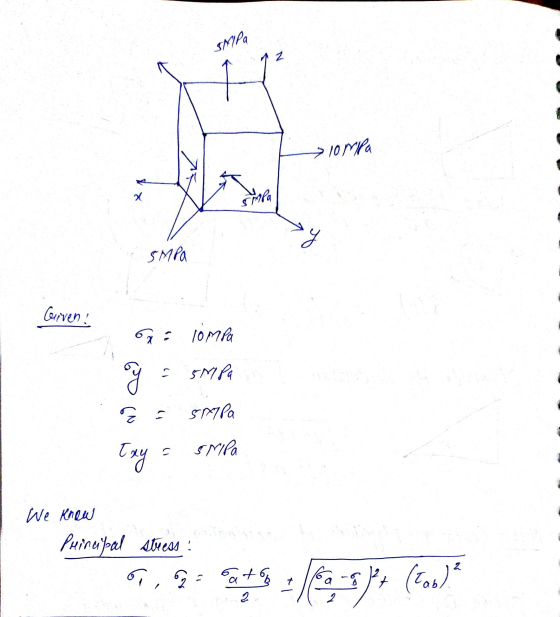 5MPa
z
10MPa
x
5MPa
y
5MPa
Given:
σx = 10MPa
σy = 5MPa
σz = 5MPa
τxy = 5MPa
We know
Principal stress:
σ1, σ2 = σa + σb / 2 ± √((σa - σb / 2)² + (τab)²)